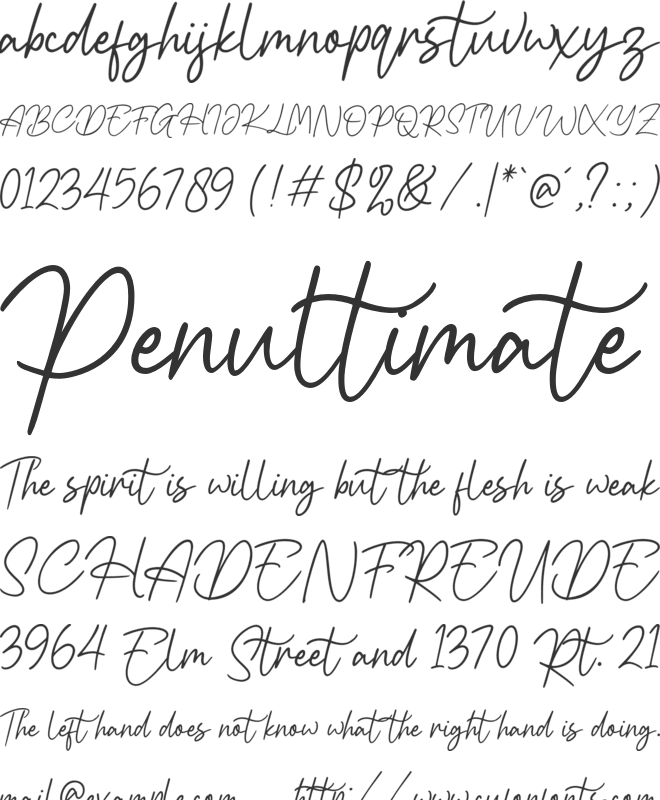 abcdefghijklmnopqrstuvwxyz
ABCDEFGHIJKLMNOPQRSTUVWXYZ
0123456789 (!#$%&/.|*`@´,?:;)
Penultimate
The spirit is willing but the flesh is weak
SCHADENFREUDE
3964 Elm Street and 1370 Rt. 21
The left hand does not know what the right hand is doing.
mail@example.com http://www.